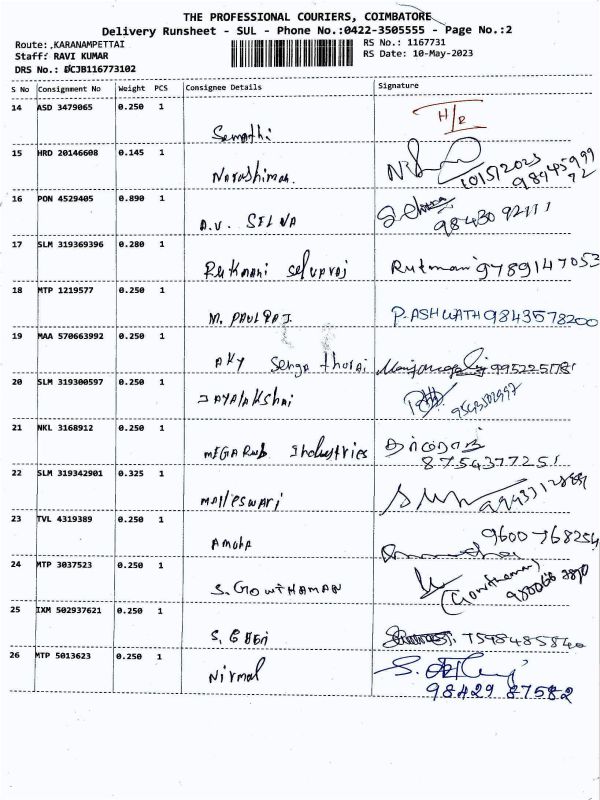 THE PROFESSIONAL COURIERS, COIMBATORE
Delivery Runsheet - SUL - Phone No.:0422-3505555 - Page No.:2
Route: .KARANAMPETTAI RS No.: 1167731
Staff: RAVI KUMAR RS Date: 10-May-2023
DRS No.: DCJB116773102
S No Consignment No Weight PCS Consignee Details Signature
14 ASD 3479065 0.250 1
H/R
Sumathi
15 HRD 20146608 0.145 1
Narashiman. 10/5/2023
16 PON 4529405 0.890 1
A.V. SELVA 98430 92111
17 SLM 319369396 0.280 1
Rukmani Selvaraj Rukmani 9789147053
18 MTP 1219577 0.250 1
M. PAULRAJ. P. ASHWATH 9843578200
19 MAA 570663992 0.250 1
AKY Senga thurai
20 SLM 319300597 0.250 1
JAYALAKShmi
21 NKL 3168912 0.250 1
MEGA Rub Industries
8754377251
22 SLM 319342901 0.325 1
Malleswari
23 TVL 4319389 0.250 1
Amutha 9600768254
24 MTP 3037523 0.250 1
S. GOWTHAMAN (Gowthaman)
25 IXM 502937621 0.250 1
7598485840
26 MTP 5013623 0.250 1
Nirmal
98429 87582